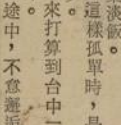 淡飯。
這樣孤單時,是
。
來打算到台中一
途中,不意邂逅